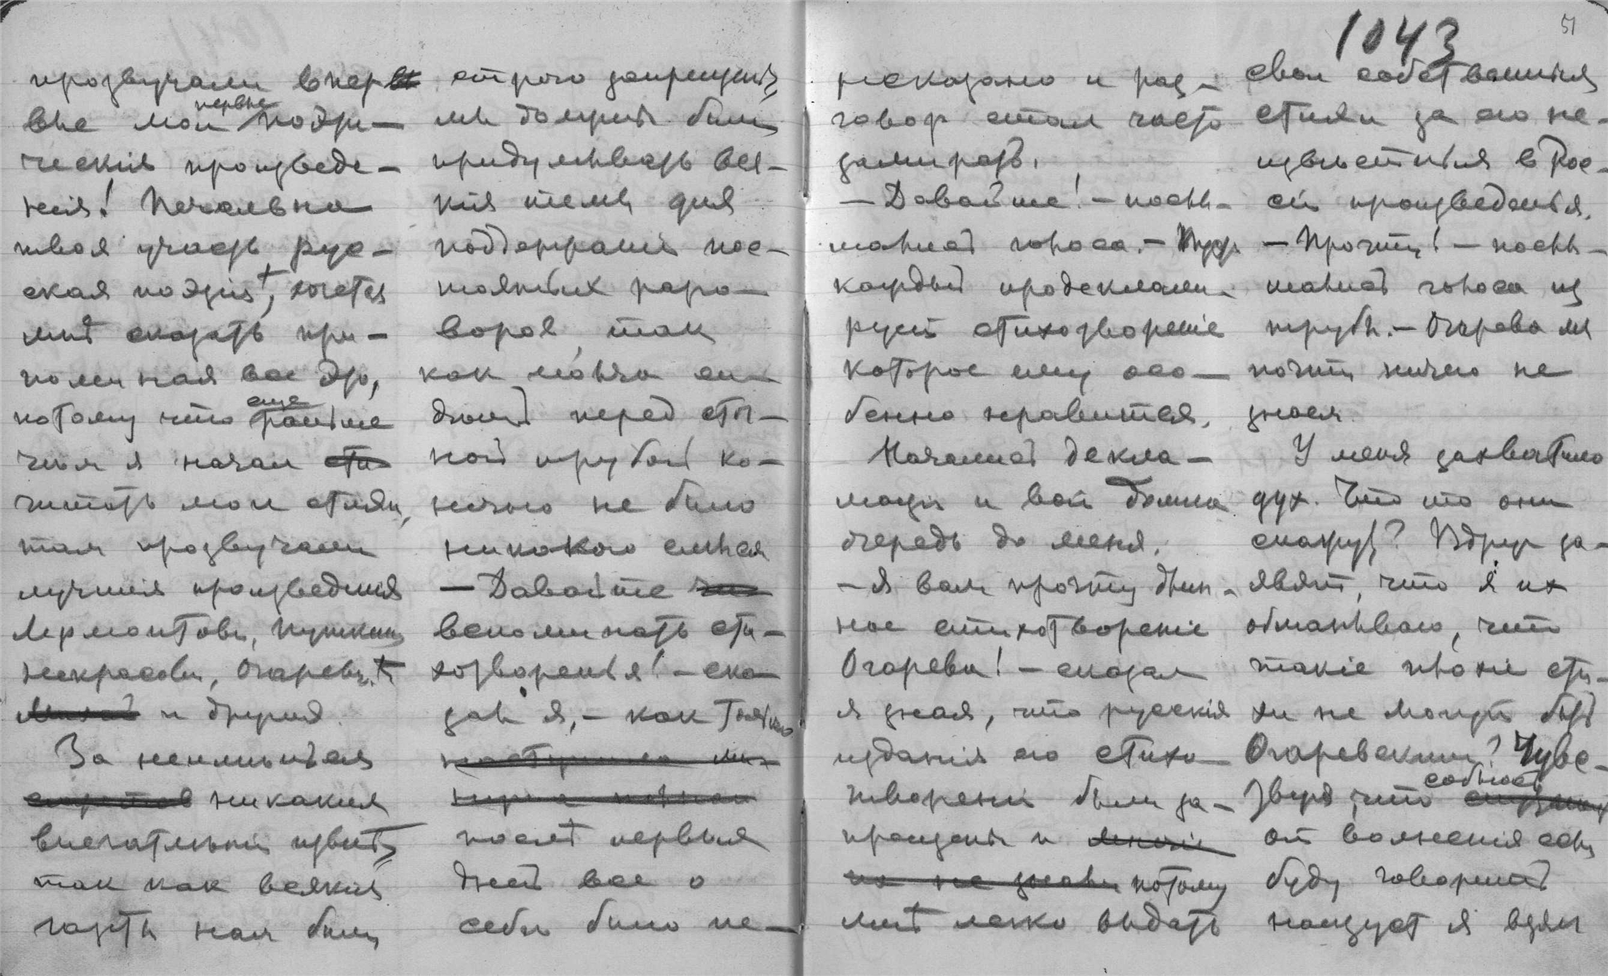 1043
51
прозвучали впервы
вые мои первые поэти-
ческія произведе-
нія! Печальна
твоя участь рус-
ская поэзія, хочется
мнѣ сказать при-
поминая все это,
потому что еще раньше
чѣм я начал сти
читать мои стихи,
там прозвучали
лучшія произведенія
Лермонтова, Пушкина
Некрасова, Огарева
и другия.
За неимѣнием
никаких
впечатлѣній извнѣ,
так как всякія
газеты нам были
строго запрещены,
мы должны были
придумывать вся-
кія темы для
поддержанія пос-
тоянных разго-
воров, так
как молча си-
дѣть перед сто-
ной трубой ко-
нечно не было
никакого смысла
— Давайте
вспоминать сти-
хотворенья! — ска-
зал я, — как только
послѣ первых
дней все о
себѣ было не-
рсказано и раз-
говор стал часто
замирать.
— Давайте! — послы-
шались голоса. — Пусть
каждый продеклами-
рует стихотвореніе
которое ему осо-
бенно нравится.
Началась декла-
мація и вот дошла
очередь до меня.
— Я вам прочту длин-
ное стихотвореніе
Огарева! — сказал
я зная, что русскія
изданія его стихо
творений были за-
прещены и
потому
мнѣ легко выдать
свои собственныя
стихи за его не-
извѣстныя в Рос-
сіи произведенья.
— Прочти! — послы-
шались голоса из
трубы. — Огарева мы
почти ничего не
знаем.
У меня захватило
дух. Что то они
скажут? Вдруг за-
явят, что я их
обманываю, что
такіе плохіе сти-
хи не могут быть
Огаревскими? Чувс-
твуя, что собьюсь
от волненія если
буду говорить
наизуст я взял